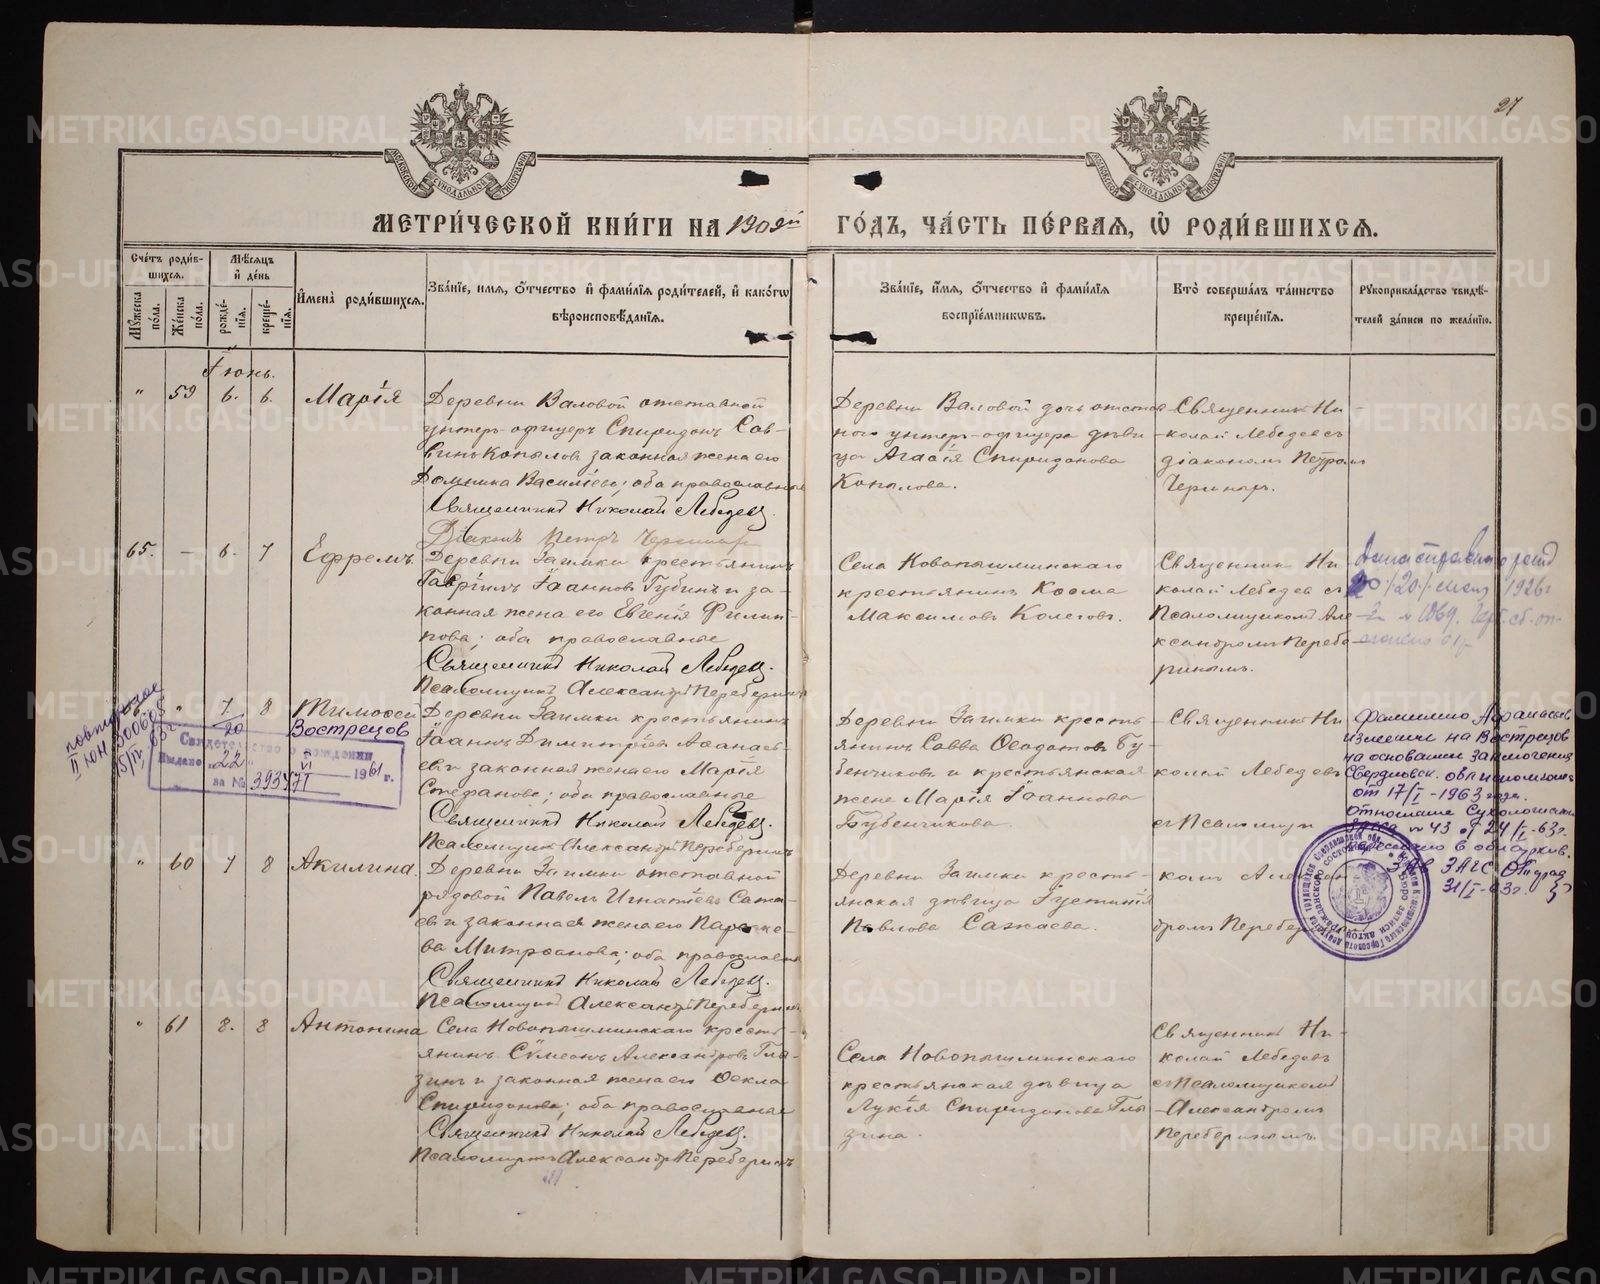 27
МЕТРИ́ЧЕСКОЙ КНИ́ГИ НА 1909й ГО́ДЪ, ЧА́СТЬ ПЕ́РВАЯ, Ѽ РОДИ́ВШИХСЯ.
Сче́тъ роди́вшихся.
Мꙋ́жеска по́ла.
Же́нска по́ла.
Мѣ́сяцъ и҆ де́нь
рожде́нїя.
креще́нїя.
И҆мена̀ роди́вшихся.
Зва́нїе, и҆мя, ѻ҆́тчество и҆ фами́лїя роди́телей, и҆ како́гѡ
вѣроисповѣ́данїя.
Зва́нїе, и҆́мя, ѻ҆́тчество и҆ фами́лїя
воспрїе́мникѡвъ.
Кто̀ соверша́лъ та́инство
креще́нїя.
Рꙋкоприкла́дство свидѣ́-
телей за́писи по жела́нїю.
Іюнь.
" 59 6. 6. Марія
Деревни Валовой отставной
унтеръ-офицеръ Спиридонъ Сав-
винъ Копыловъ законная жена его
Домника Василіева; оба православные
Священникъ Николай Лебедевъ.
Діаконъ Петръ
Деревни Валовой дочь отстав
ного унтеръ-офицера дѣви
ца Агаѳія Спиридонова
Копылова.
Священникъ Ни
колай Лебедевъ съ
діакономъ Петромъ
65. — 6. 7 Ефремъ.
Деревни Заимки крестьянинъ
Гавріилъ Іоанновъ Губинъ и за-
конная жена его Евгенія Филип-
пова; оба православные
Священникъ Николай Лебедевъ.
Псаломщикъ Александръ Переберинъ
Села Новопышминскаго
крестьянинъ Косма
Максимовъ Колеговъ.
Священникъ Ни
колай Лебедевъ съ
Псаломщикомъ Але
ксандромъ Перебе
риномъ.
1926г
66. " 7. 8 Тимоѳей
20
Вострецов
Деревни Заимки крестьянинъ
Іоаннъ Димитріевъ Аѳанась-
евъ и законная жена его Марія
Стефанова; оба православные
Священникъ Николай Лебедевъ.
Псаломщикъ Александръ Переберинъ
Деревни Заимки кресть
янинъ Савва Ѳеодотовъ Бу-
бенчиковъ и крестьянская
жена Марія Іоаннова
Бубенчикова.
Священникъ Ни
колай Лебедевъ
съ Псаломщи
комъ Алексан
дромъ Перебер
повторное
II ЮН
Свидетельство о рождении
Выдано "22" VI 1961 г.
за №
Фамилию Афанасьев
изменить на Вострецов
на основании заключения
Свердловск. облисполкома
от 17/I-1963 года.
Отношение Сухоложского
ЗАГСа № 43 от 24/I-63г.
Зав ЗАГС
31/I-63г.
" 60 7 8 Акилина.
Деревни Заимки отставной
рядовой Павелъ Игнатіевъ Сажа-
евъ и законная жена его Параске-
ва Митрофанова; оба православные
Священникъ Николай Лебедевъ.
Псаломщикъ Александръ Переберинъ
Деревни Заимки кресть-
янская дѣвица Іустинія
Павлова Сажаева.
" 61 8. 8 Антонина
Села Новопышминскаго кресть-
янинъ Сѵмеонъ Александровъ Гла-
зинъ и законная жена его Ѳекла
Спиридонова; оба православные
Священникъ Николай Лебедевъ.
Псаломщикъ Александръ Переберинъ
Села Новопышминскаго
крестьянская дѣвица
Лукія Спиридонова Гла
зина.
Священникъ Ни-
колай Лебедевъ
съ Псаломщикомъ
Александромъ
Переберинымъ.